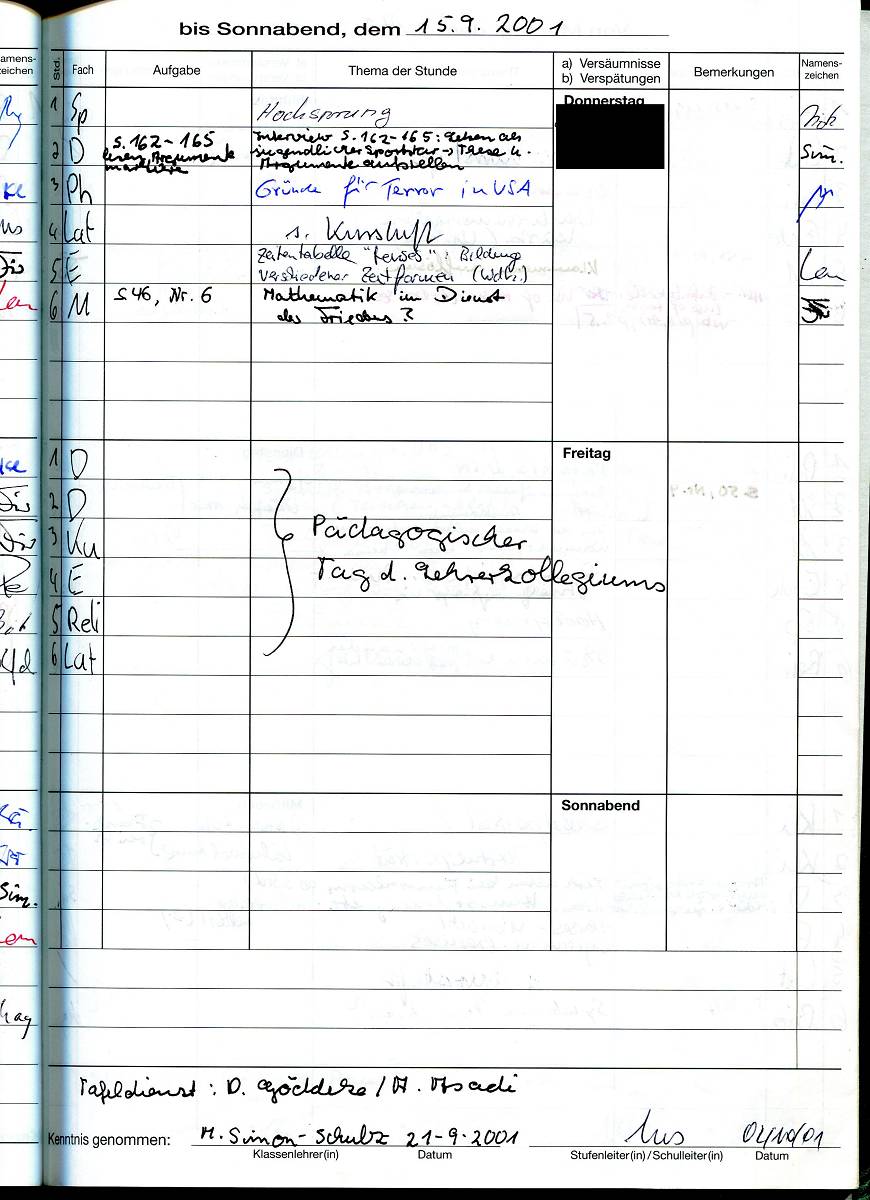 bis Sonnabend, dem 15.9. 2001
Std. Fach Aufgabe Thema der Stunde a) Versäumnisse b) Verspätungen Bemerkungen Namens-zeichen
Donnerstag
1 Sp Hochsprung
2 D S. 162-165 Interview S. 162-165: Leben als Sim.
lesen, Argumente jugendlicher Sportstar -> These u.
markieren Argumente aufstellen
3 Ph Gründe für Terror in USA
4 Lat s. Kursheft
5 E Zeitentabelle "tenses": Bildung Len
verschiedener Zeitformen (Wdh.)
6 M S. 46, Nr. 6 Mathematik im Dienst
des Friedens?
Freitag
1 D
2 D
3 Ku Pädagogischer
4 E Tag d. Lehrerkollegiums
5 Reli
6 Lat
Sonnabend
Tafeldienst: D. Göddeke / A. Asadi
Kenntnis genommen: M. Simon-Schulz 21-9-2001 04/10/01
Klassenlehrer(in) Datum Stufenleiter(in)/Schulleiter(in) Datum